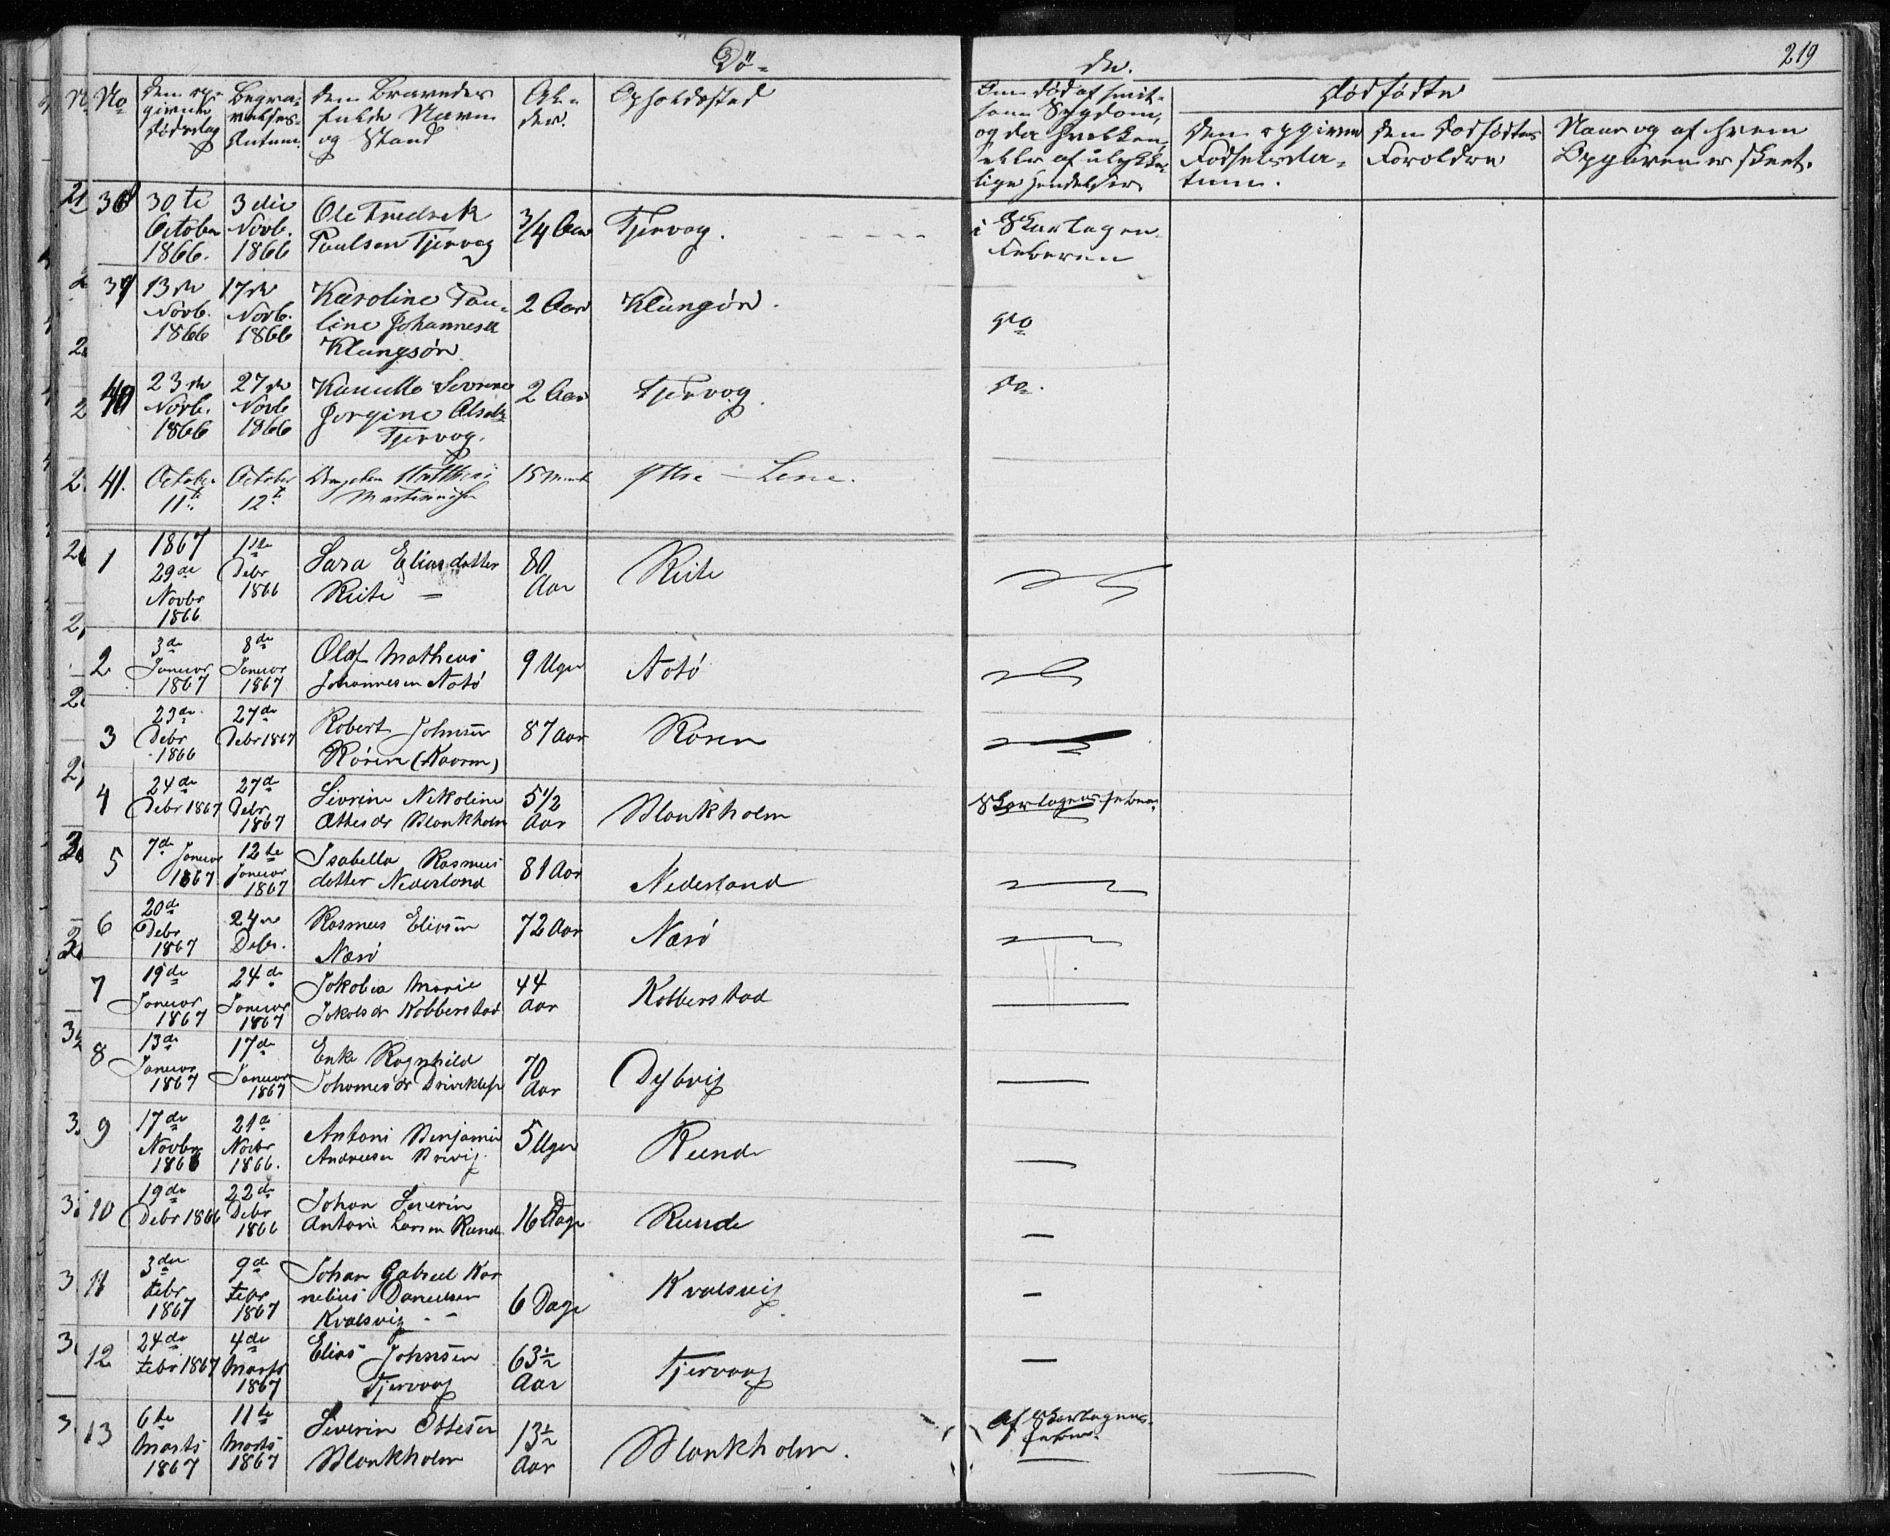 Dö-
de.
219
No
Den op-
givne
Dødsdag
Begra-
velses-
Datum.
Den Begravedes
fulde Navn
og Stand
Al-
der.
Opholdssted
Om død af smit-
som Sygdom,
og da hvilken,
eller af ulykke-
lige Hændelser
Dødfødte
Den opgivne
Fødselsda-
tum.
Den Dødfødtes
Forældre
Naar og af hvem
Opgaven er skeet.
30 te October 1866. 3die Novb. 1866 Ole Fredrik Paulsen Tjervog 3/4 Aar Tjervog. i Skarlagen Feberen
39 13de Novb. 1866 17de Novb. 1866 Karoline Pau- line Johannesd Klungsör 2 Aar Klungsör. do
40 23de Novb. 1866 27de Novb 1866 Sevrine Jorgine Tjervog. 2 Aar Tjervog. do.
41. October 11te October 12te 15 Ytre-
1867
1 29de Novbr 1866 1ste Debr 1866 Sara Eliasdatter Reite 80 Aar Reite
2 3de Januar 1867 8de Januar 1867 Olaf Matheus Johannesen Notö 9 Uger Notö
3 23de Debr 1866 27de Debr 1867 Robert Johnsen Rören 87 Aar Rören
4 24de Debr 1867 27de Debr 1867 Sivrine Nikoline Ottesdr Blankholm 5 1/2 Aar Blankholm Skarlagensfeber
5 7de Januar 1867 12te Januar 1867 Isabella Rasmus datter Nederland 81 Aar Nederland
6 20de Debr 1867 24de Debr. Rasmus Eliasen Nærö 72 Aar Nærö
7 19de Januar 1867 24de Januar 1867 Jakobea Marie Jakobsdr Kobberstad 44 Aar Kobberstad
8 13de Januar 1867 17de Januar 1867 Enke Ragnhild Johannesdr 70 Aar Dybvig
9 17de Novbr 1866 21de Novbr 1866. Antoni Benjamin Andreesen 5 Uger Runde
10 19de Debr 1866 22de Debr 1866 Johan Severin Antoni Larsen Runde 16 Dage Runde
11 3die Febr 1867 9de Febr 1867 Johan Gabriel Kor nelius Danielsen Kvalsvig 6 Dage Kvalsvig
12 24de Febr 1867 4de Marts 1867 Elias Johnsen Tjervaag 63 1/2 Aar Tjervaag
13 6te Marts 1867 11te Marts 1867 Severin Ottesen Blankholm 13 1/2 Aar Blankholm. Af Skarlagens- feber.